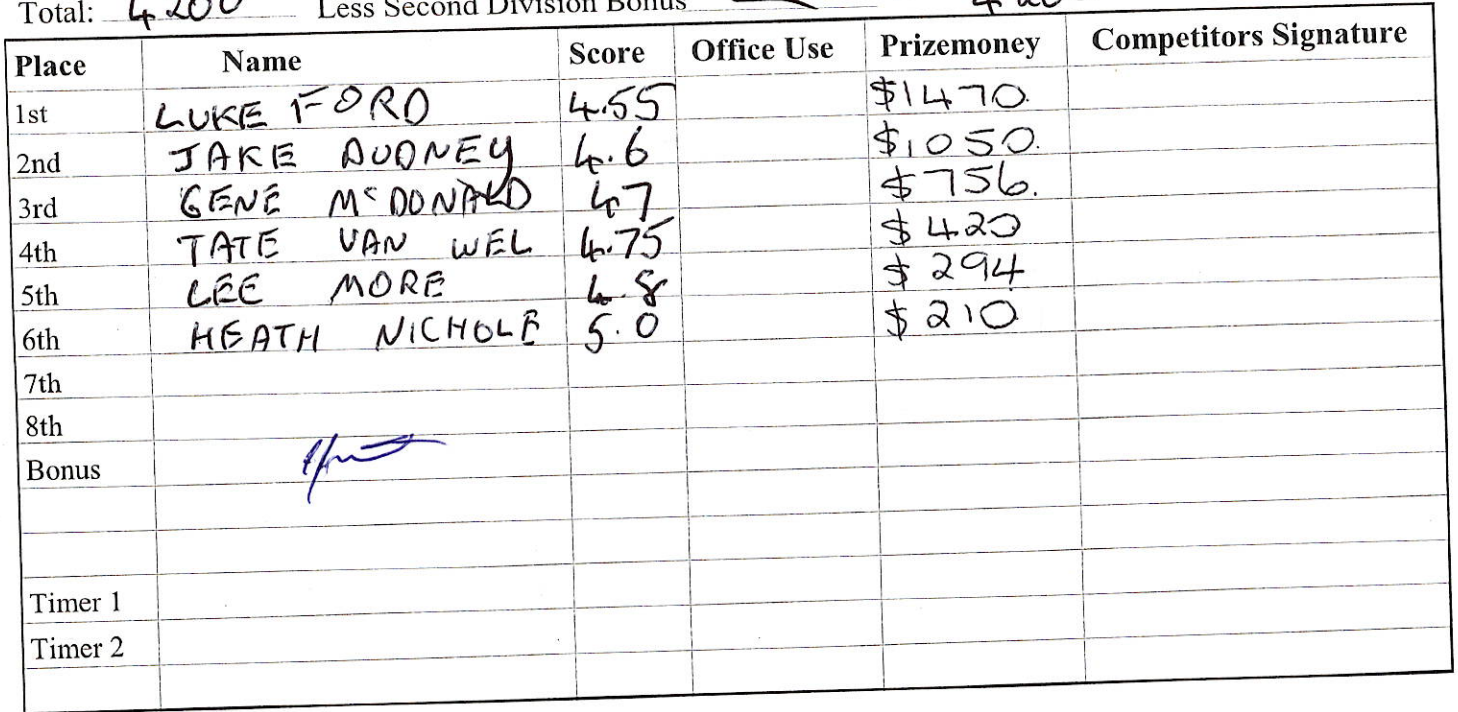 Total: 4200 Less Second Division Bonus
Place Name Score Office Use Prizemoney Competitors Signature
1st LUKE FORD 4.55 $1470.
2nd JAKE DUDNEY 4.6 $1050.
3rd GENE McDONALD 4.7 $756.
4th TATE VAN WEL 4.75 $420
5th LEE MORE 4.8 $294
6th HEATH NICHOLE 5.0 $210
7th
8th
Bonus
Timer 1
Timer 2